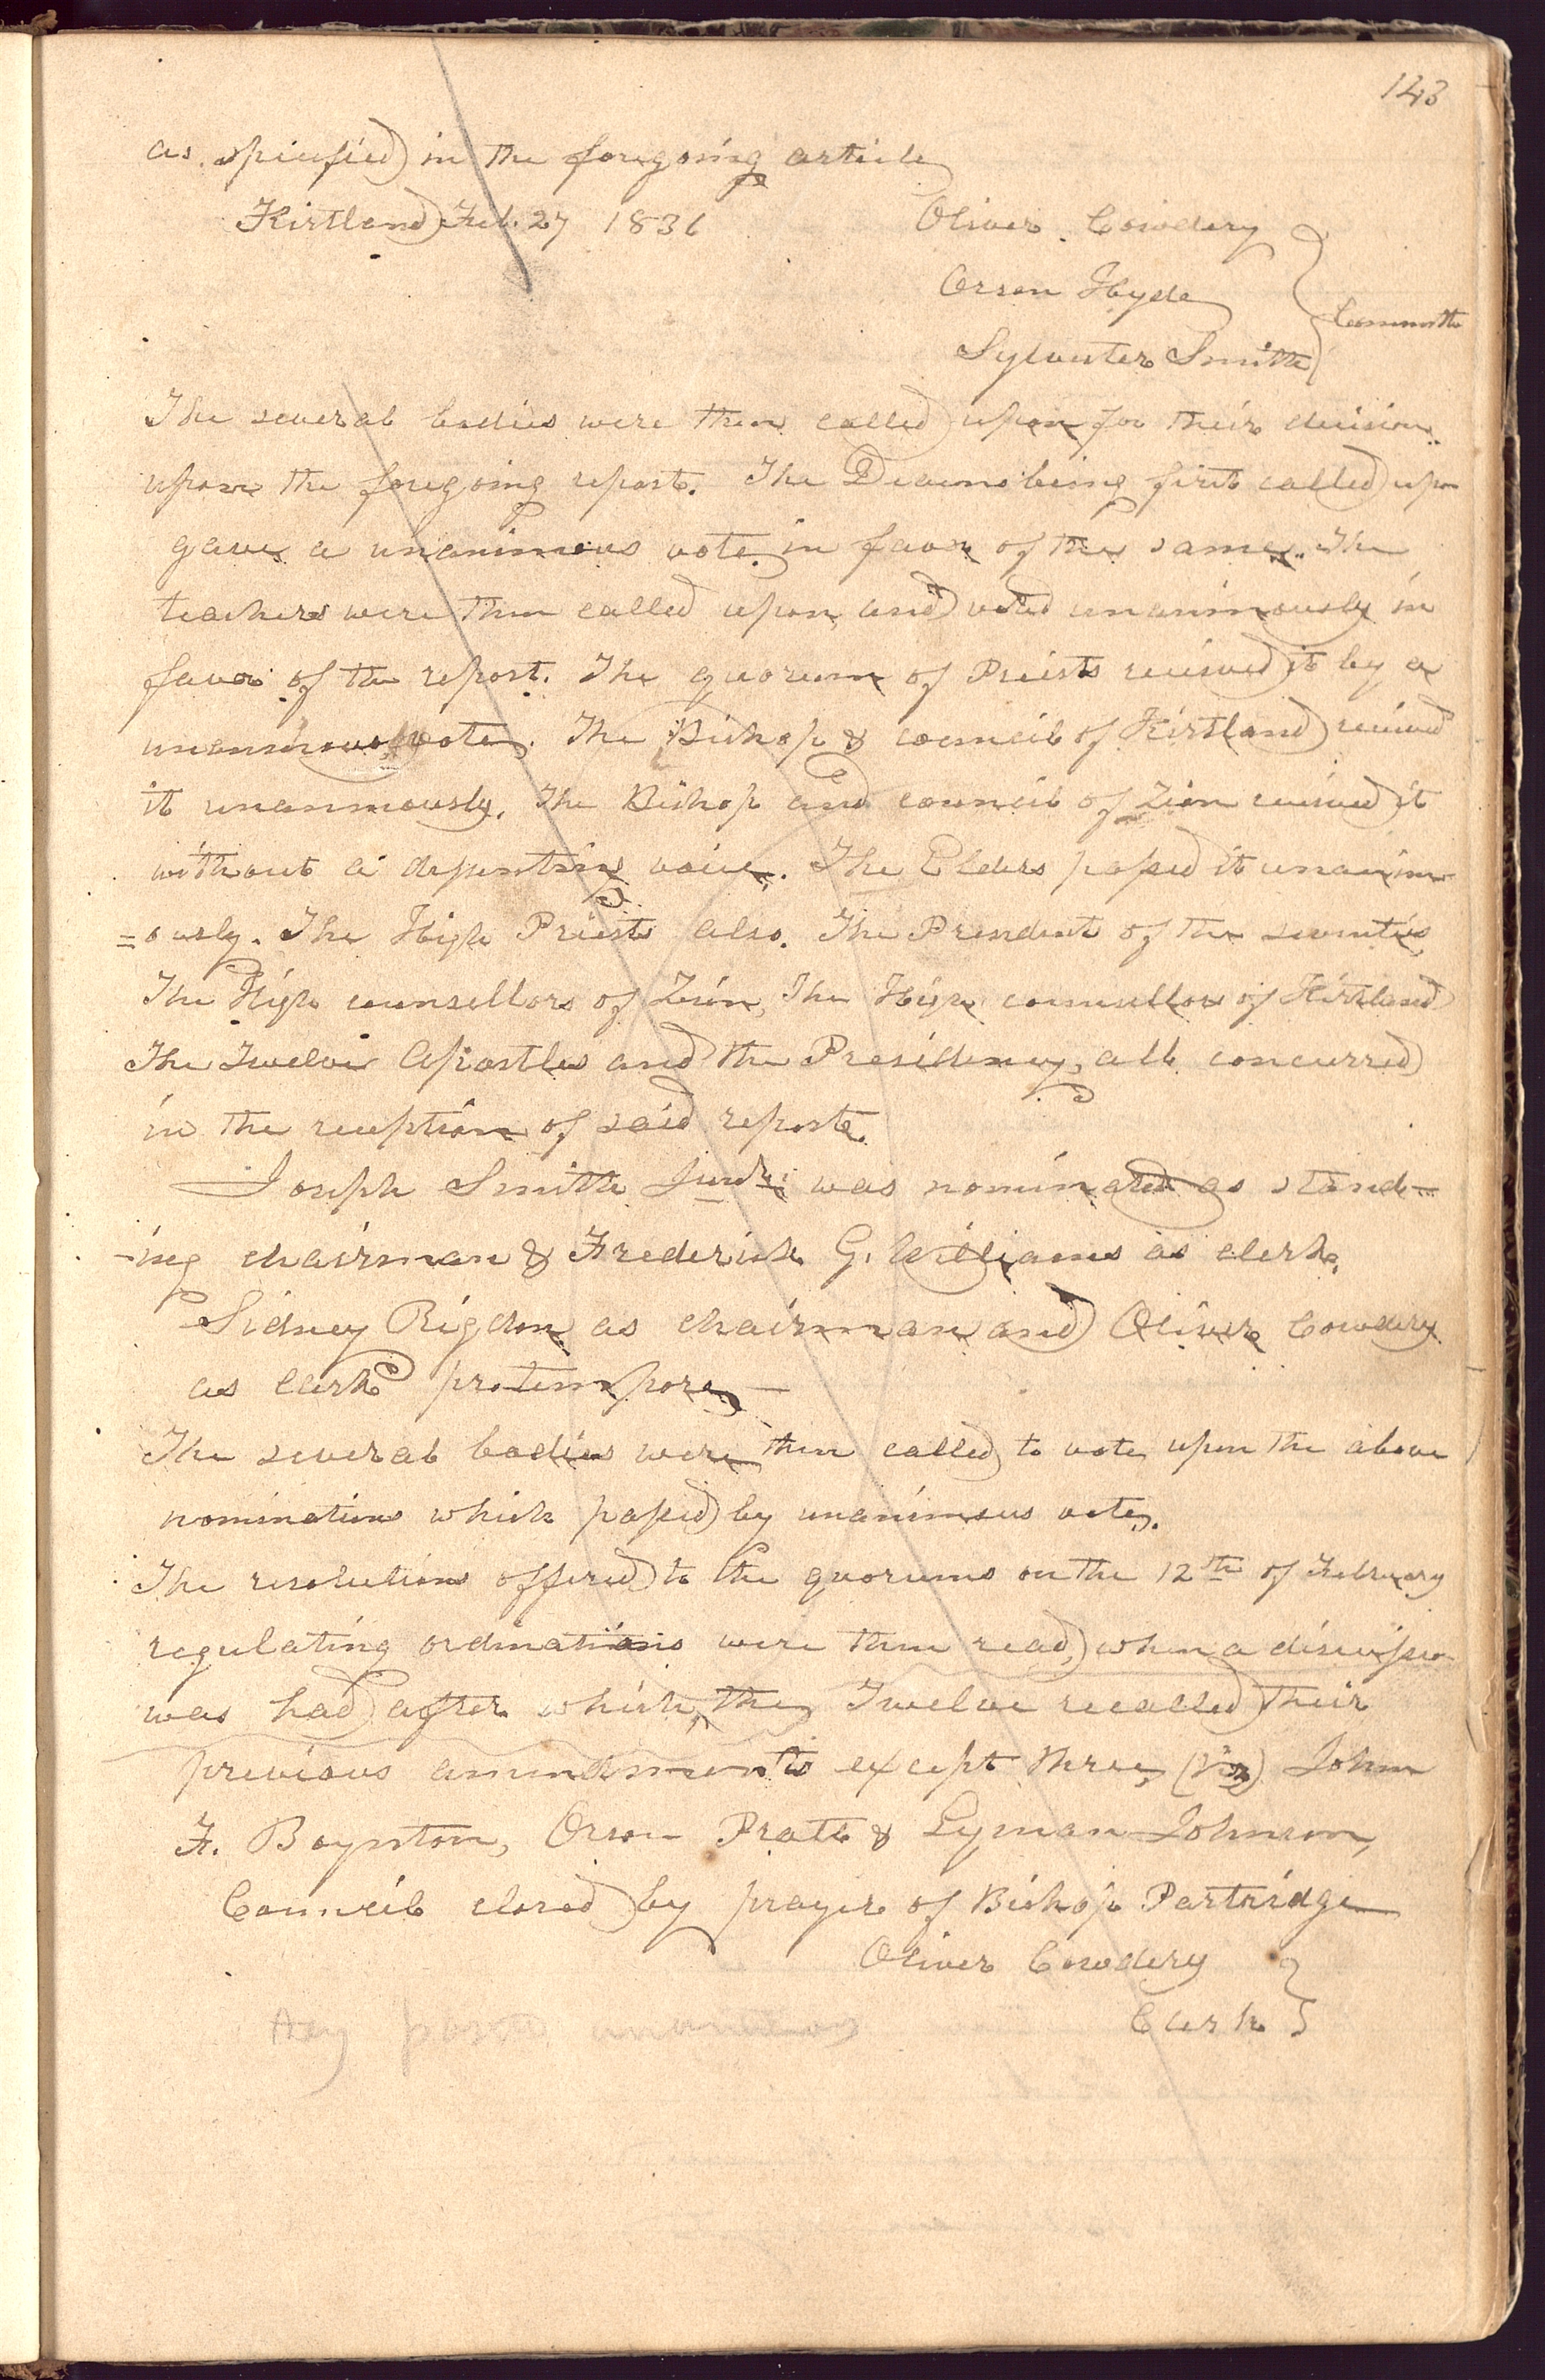 143
as specified in the foregoing article
Kirtland Feb. 27 1836
Oliver Cowdery
Orson Hyde
Sylvester Smith
} Committe
The several bodies were then called upon for their decision
upon the foregoing report. The Deacons being first called upon
gave a unanimous vote in favor of the same. The
teachers were then called upon and voted unanimously in
favor of the report. The quorum of Preists received it by a
unanimous vote. The Bishop & council of Kirtland received
it unanimously. The Bishop and council of Zion received it
without a dissenting voice. The Elders passed it unanim
=ously. The High Priests also. The President of the seventies
The High counsellors of Zion, The High counsellors of Kirtland
The Twelve Apostles and the Presidency, all concurred
in the reception of said report.
Joseph Smith Junr. was nominated as stand-
-ing chairman & Frederick G. Williams as clerk.
Sidney Rigdon as chairman and Oliver Cowdery
as clerk protempore—
The several bodies were then called to vote upon the above
nominations which passed by unanimous vote.
The resolutions offered to the quorums on the 12th of February
regulating ordinations were then read, when a discussion
was had after which, the Twelve recalled their
previous amendments except three, (viz) John
F. Boynton, Orson Pratt & Lyman Johnson,
Council closed by prayer of Bishop Partridge
Oliver Cowdery }
Clerk